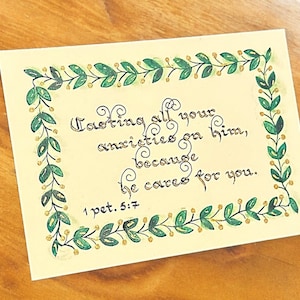 Casting all your
anxieties on him,
because
he cares for you.
1 pet. 5:7